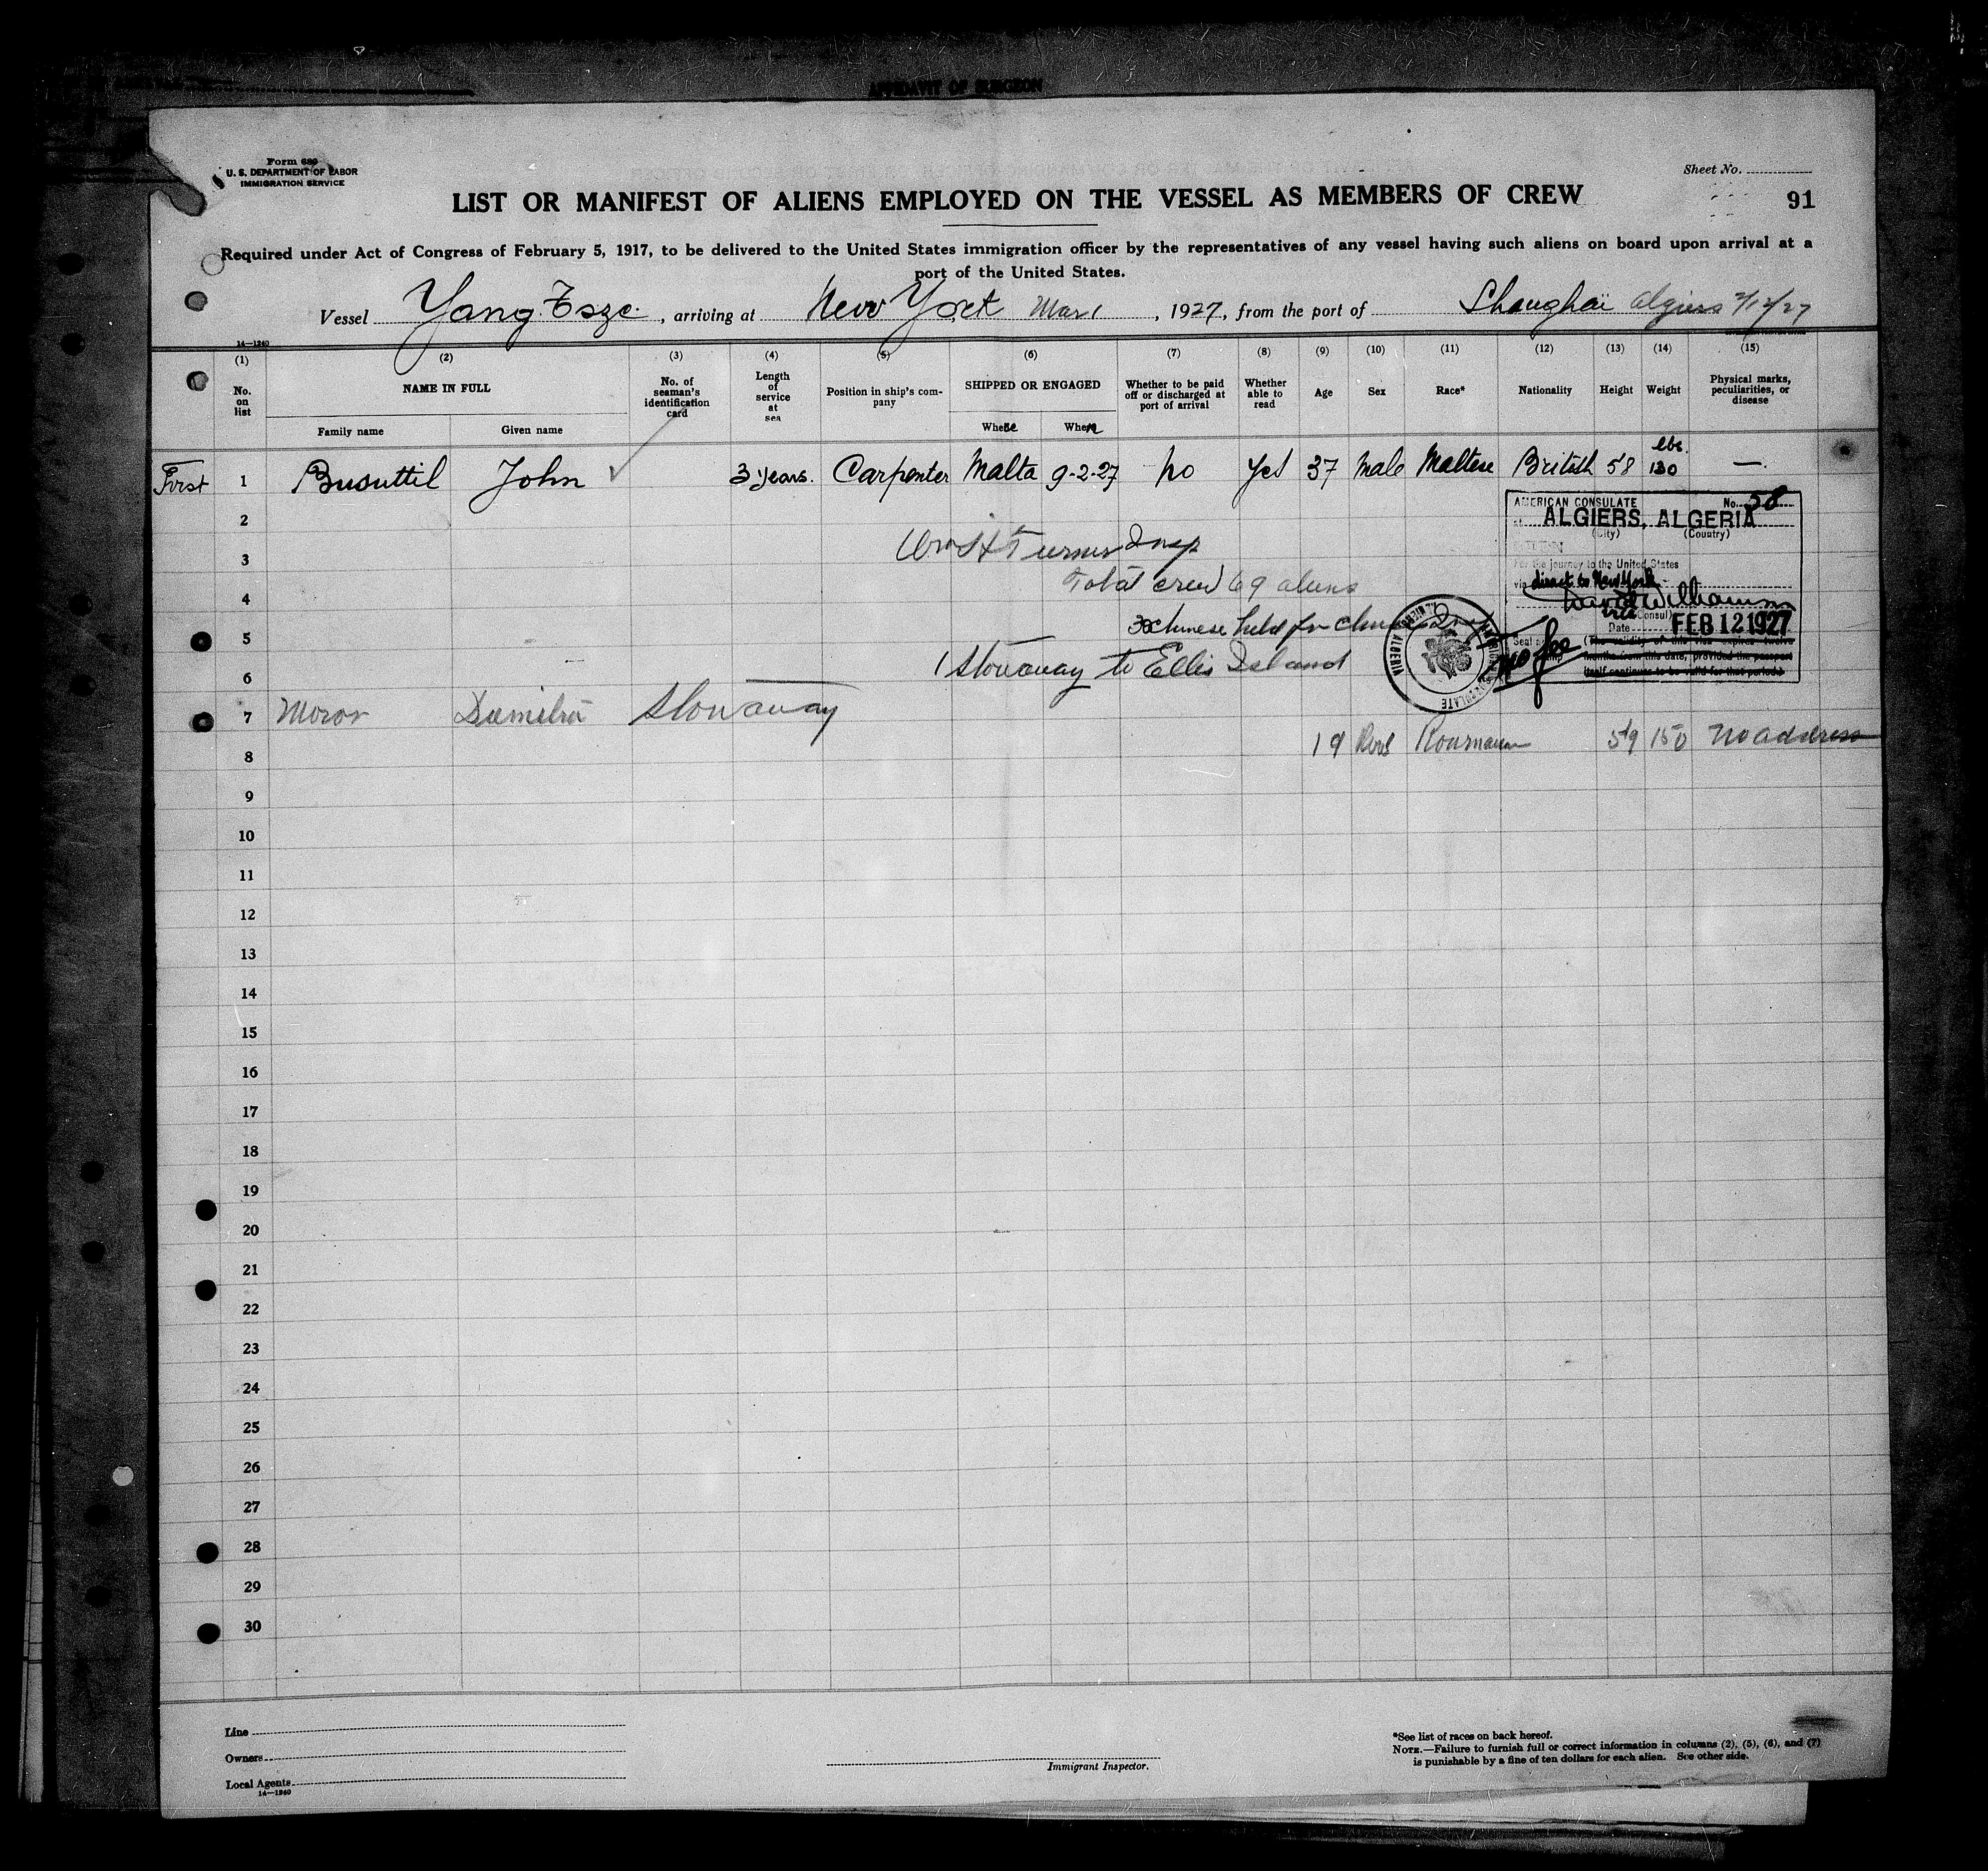 AFFIDAVIT OF SURGEON
Form 680
U. S. DEPARTMENT OF LABOR
IMMIGRATION SERVICE
Sheet No.
LIST OR MANIFEST OF ALIENS EMPLOYED ON THE VESSEL AS MEMBERS OF CREW
91
Required under Act of Congress of February 5, 1917, to be delivered to the United States immigration officer by the representatives of any vessel having such aliens on board upon arrival at a
port of the United States.
Vessel Yang Tsze, arriving at New York Mar 1, 1927, from the port of Shanghaï Algiers 2/12/27
14—1240
(1) (2) (3) (4) (5) (6) (7) (8) (9) (10) (11) (12) (13) (14) (15)
No. on list
NAME IN FULL
Family name
Given name
No. of seaman's identification card
Length of service at sea
Position in ship's company
SHIPPED OR ENGAGED
Where
When
Whether to be paid off or discharged at port of arrival
Whether able to read
Age
Sex
Race*
Nationality
Height
Weight
Physical marks, peculiarities, or disease
lbs.
First 1 Busuttil John 3 years. Carpenter Malta 9-2-27 No Yes 37 Male Maltese British 58 130 —
2
AMERICAN CONSULATE No. 58
at ALGIERS, ALGERIA
(City) (Country)
3
Turner Insp
For the journey to the United States
via direct to New York
4
Total crew 69 aliens
Vice Consul
Date FEB 12 1927
5
Chinese held for
Seal
No fee
(The validity of this visa expires twelve
months from this date, provided the passport
itself continues to be valid for that period.)
AMERICAN CONSULATE
ALGIERS ALGERIA
6
1 Stowaway to Ellis Island
7 Moror Dumitru Stowaway
8 19 Roumanian 59 150 No address
9
10
11
12
13
14
15
16
17
18
19
20
21
22
23
24
25
26
27
28
29
30
Line
Owners
Local Agents
14—1240
Immigrant Inspector.
*See list of races on back hereof.
NOTE.—Failure to furnish full or correct information in columns (2), (5), (6), and (7)
is punishable by a fine of ten dollars for each alien. See other side.